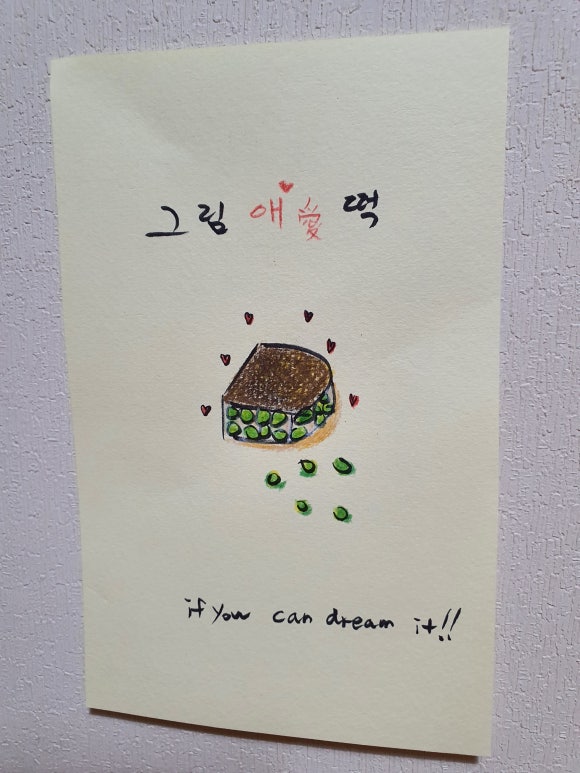 그림 애愛 떡
if you can dream it!!